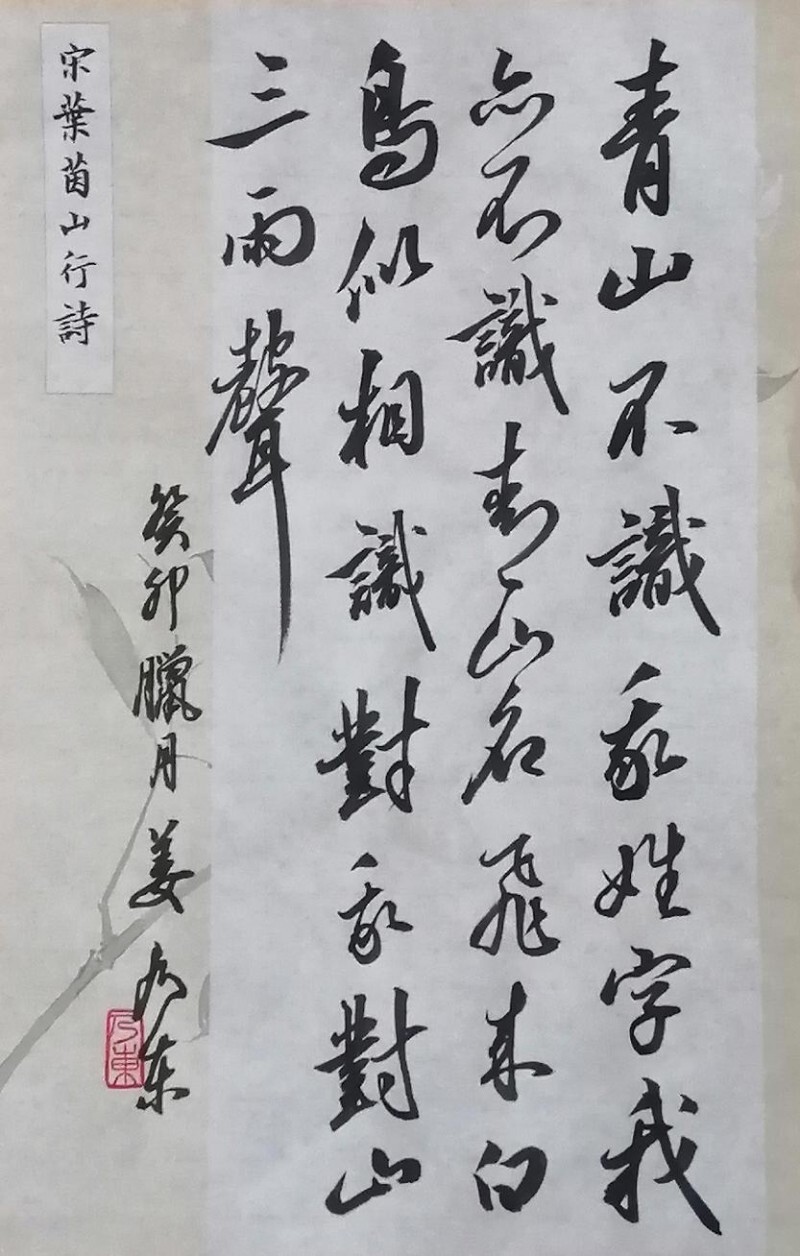 青山不識我姓字我
亦不識青山名飛來白
鳥似相識對我對山
三兩聲
癸卯臘月姜乃东
乃東
宋葉茵山行詩